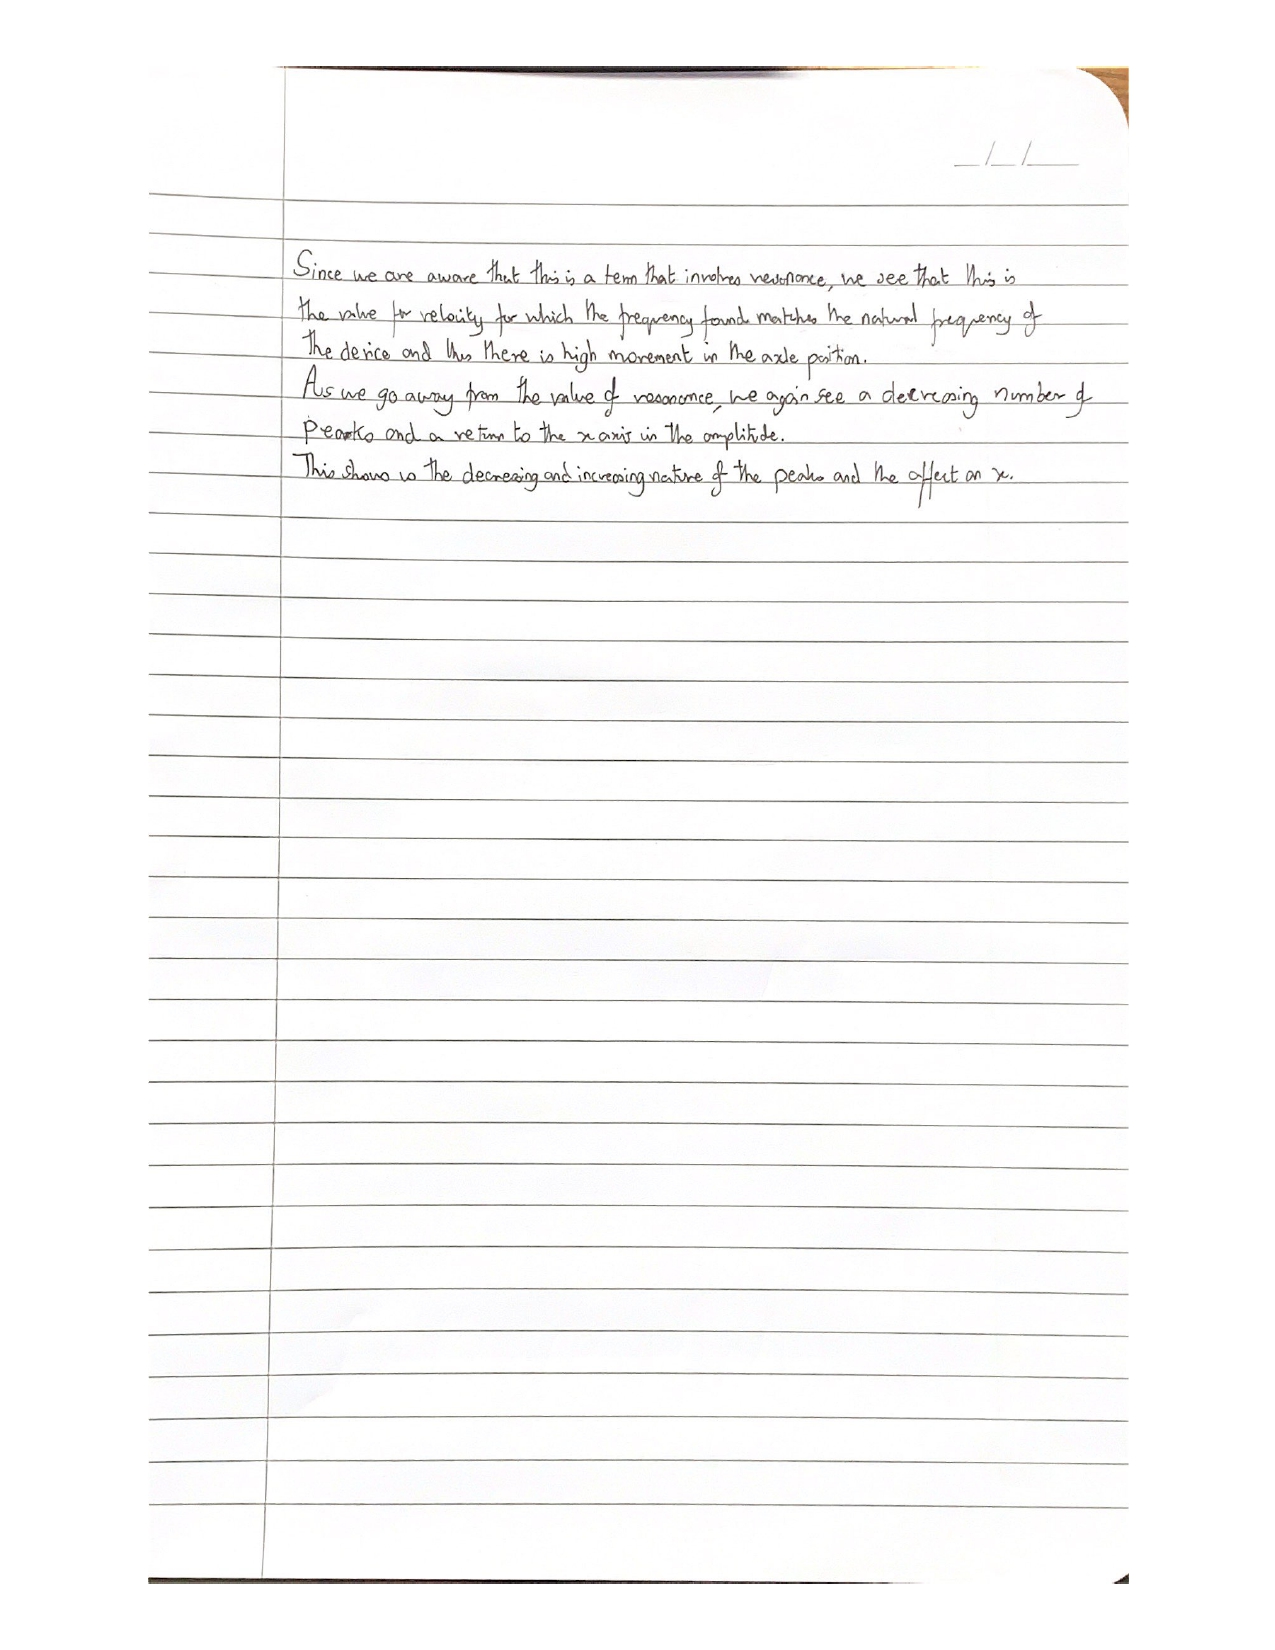 Since we are aware that this is a term that involves resonance, we see that this is
the value for velocity for which the frequency found matches the natural frequency of
the device and thus there is high movement in the axle position.
As we go away from the value of resonance, we again see a decreasing number of
peaks and a return to the x axis in the amplitude.
This shows us the decreasing and increasing nature of the peaks and the affect on x.